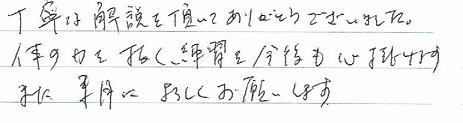 丁寧な解説を頂いてありがとうございました。
体の力を抜く練習を今後も心掛けます
また 来月に よろしくお願いします